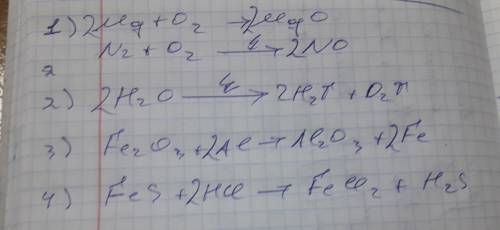 1) 2Mg + O2 → 2MgO
N2 + O2 → 2NO
2) 2H2O → 2H2↑ + O2↑
3) Fe2O3 + 2Al → Al2O3 + 2Fe
4) FeS + 2HCl → FeCl2 + H2S